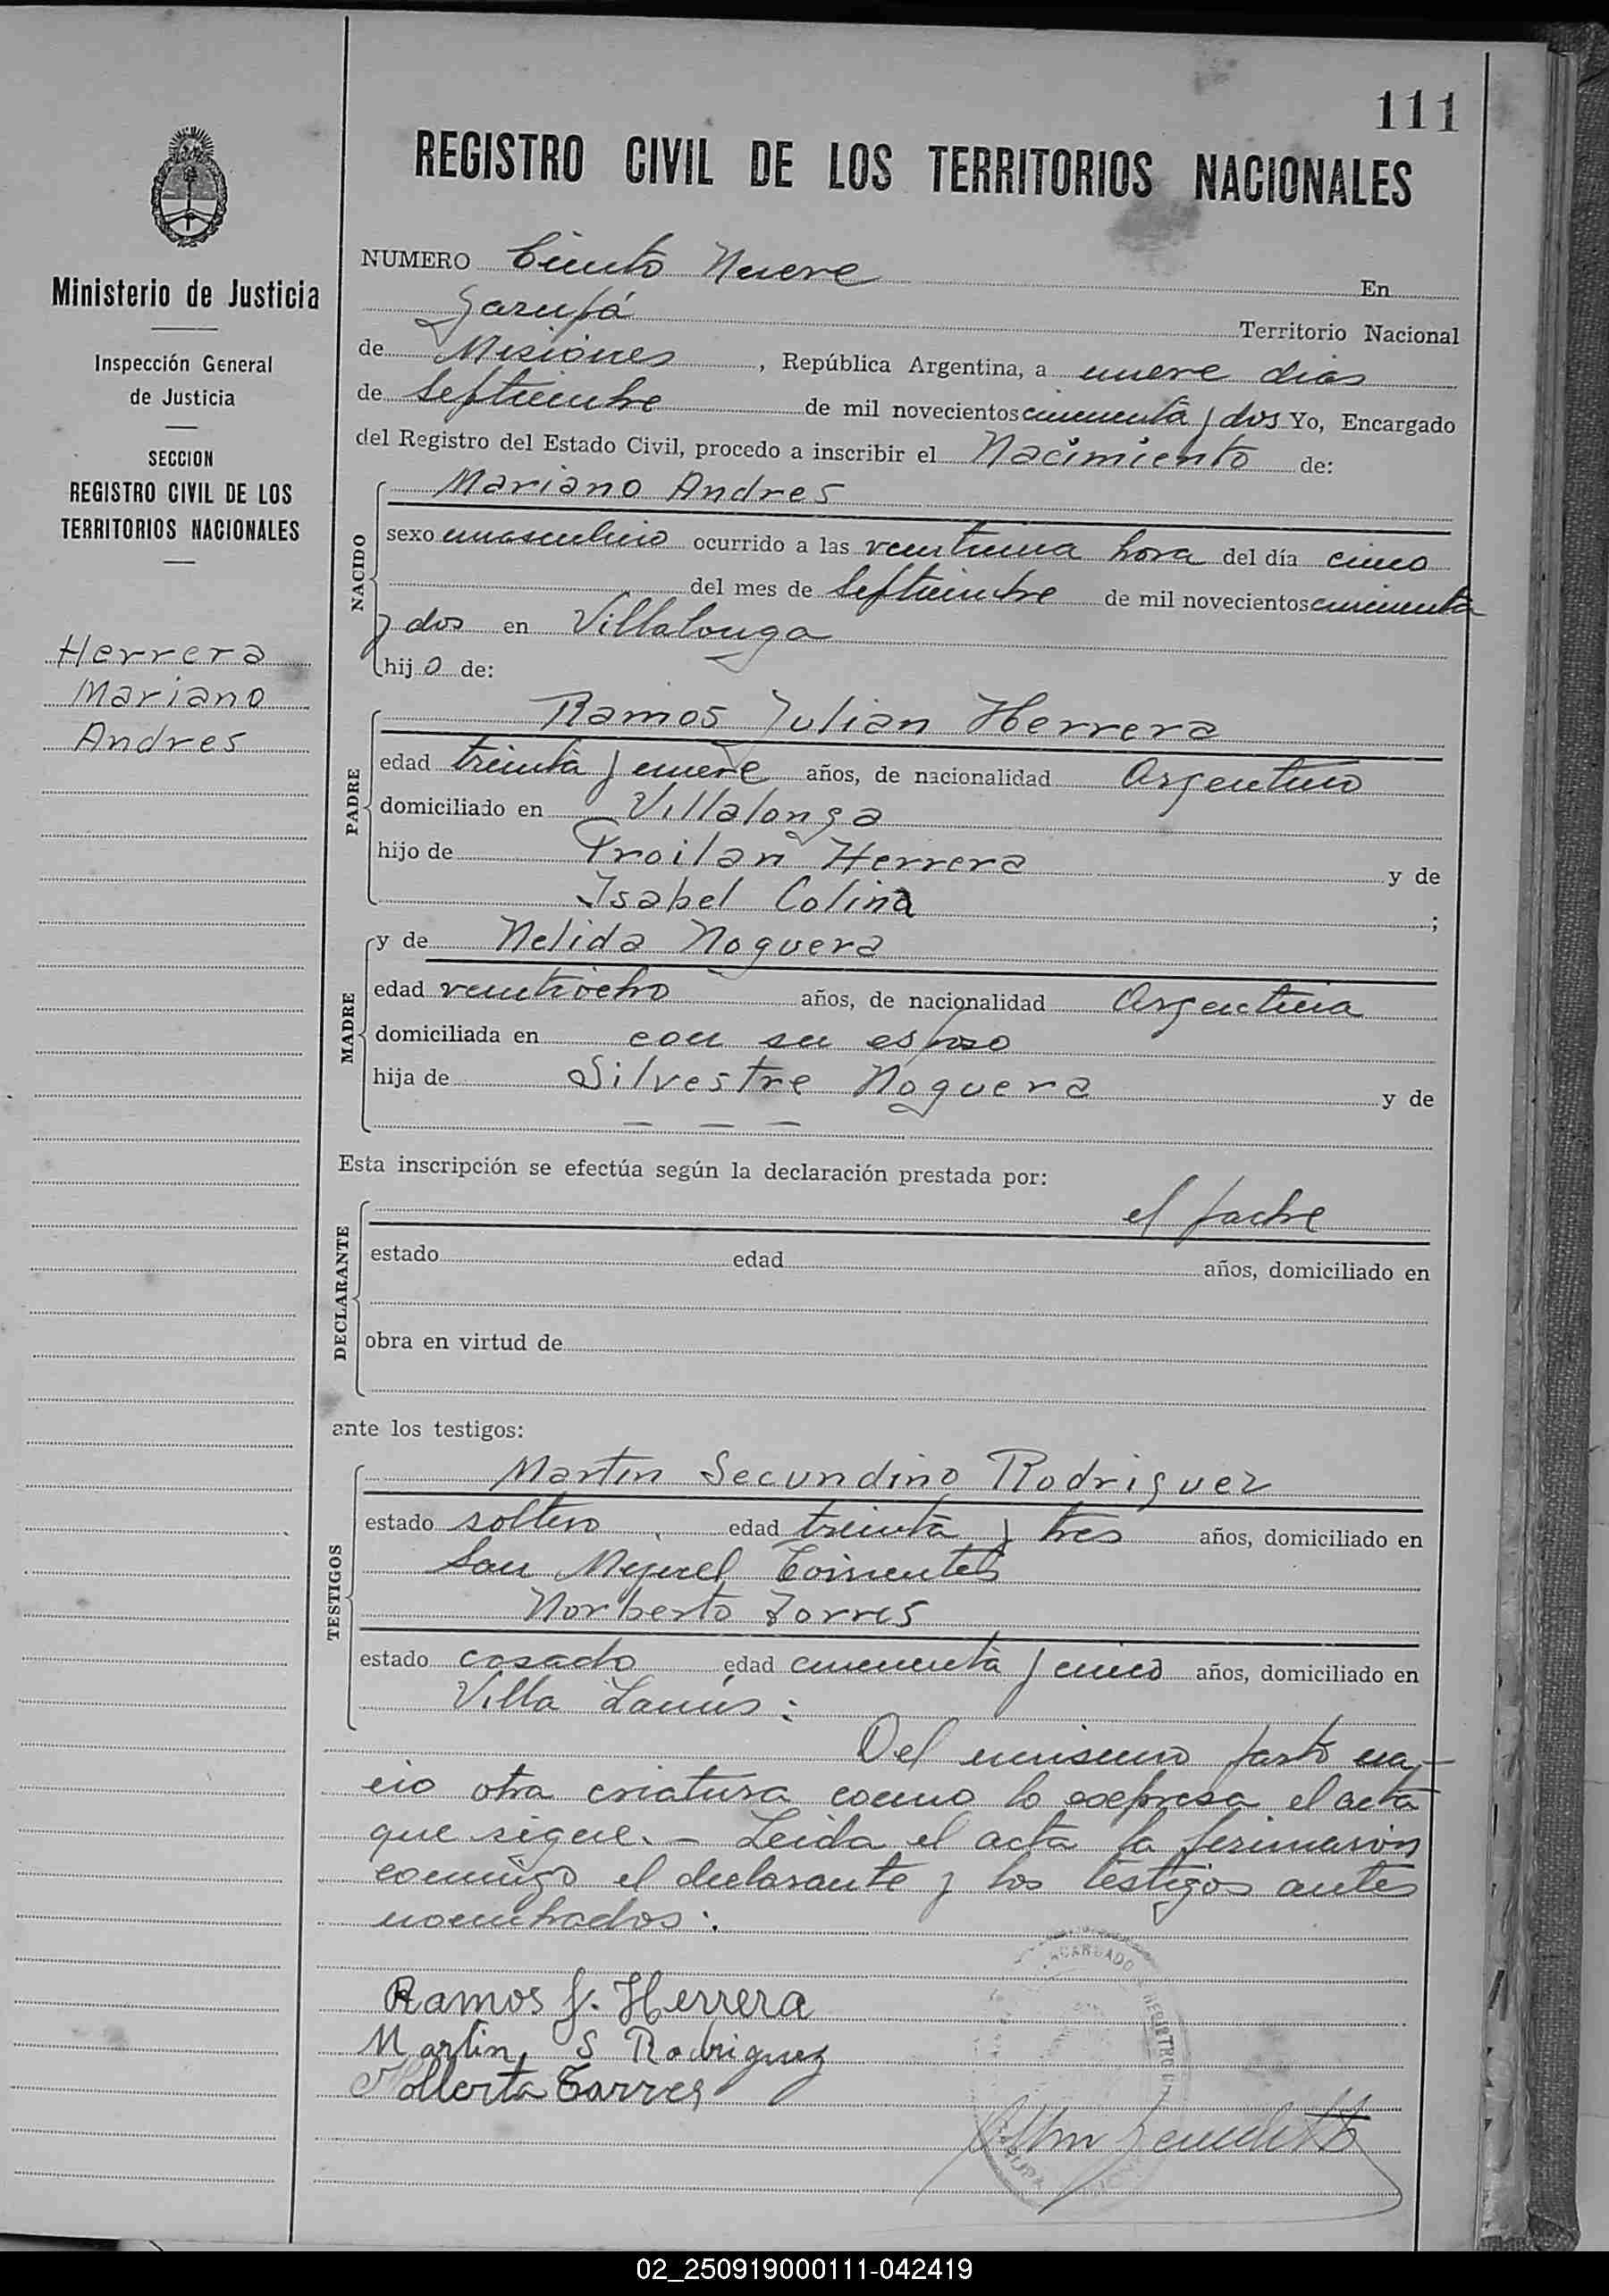 111
REGISTRO CIVIL DE LOS TERRITORIOS NACIONALES
Ministerio de Justicia
Inspección General
de Justicia
SECCION
REGISTRO CIVIL DE LOS
TERRITORIOS NACIONALES
Herrera
Mariano
Andres
NUMERO Ciento Nueve En
Garupá Territorio Nacional
de Misiones, República Argentina, a nueve dias
de Septiembre de mil novecientos cincuenta y dos Yo, Encargado
del Registro del Estado Civil, procedo a inscribir el Nacimiento de:
NACIDO
Mariano Andres
sexo masculino ocurrido a las veintiuna hora del día cinco
del mes de Septiembre de mil novecientos cincuenta
y dos en Villalonga
hijo de:
PADRE
Ramos Julian Herrera
edad treinta y nueve años, de nacionalidad Argentino
domiciliado en Villalonga
hijo de Froilan Herrera y de
Isabel Colina ;
MADRE
y de Nelida Noguera
edad veintiocho años, de nacionalidad Argentina
domiciliada en con su esposo
hija de Silvestre Noguera y de
— — —
Esta inscripción se efectúa según la declaración prestada por:
DECLARANTE
el padre
estado edad años, domiciliado en
obra en virtud de
ante los testigos:
TESTIGOS
Martin Secundino Rodriguez
estado soltero edad treinta y tres años, domiciliado en
San Miguel Corrientes
Norberto Torres
estado casado edad cincuenta y cinco años, domiciliado en
Villa Lanús:
Del mismo parto na-
cio otra criatura como lo expresa el acta
que sigue.- Leida el acta la firmaron
conmigo el declarante y los testigos antes
nombrados:.
Ramos J. Herrera
Martin S Rodriguez
Torres
ENCARGADO REGISTRO
GARUPA
02_250919000111-042419